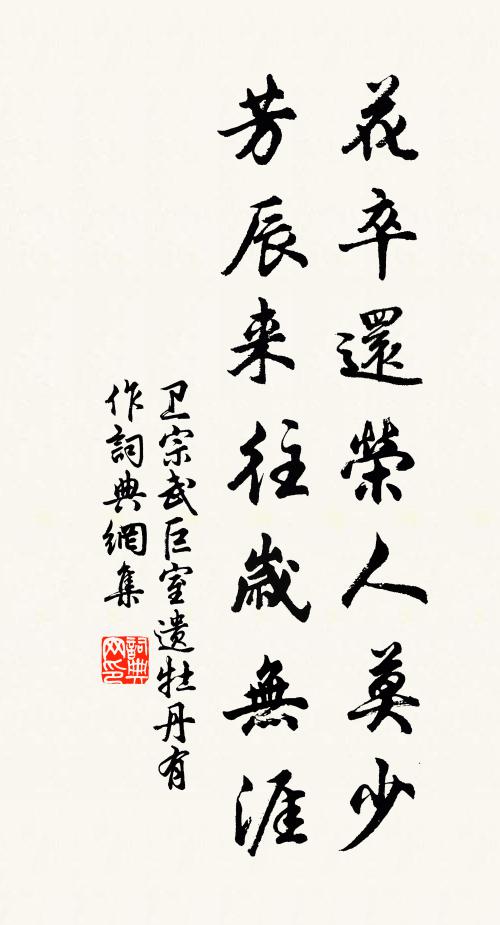 花卒還榮人莫少
芳辰来往歲無涯
卫宗武巨室遗牡丹有
作詞典網集
詞典網印